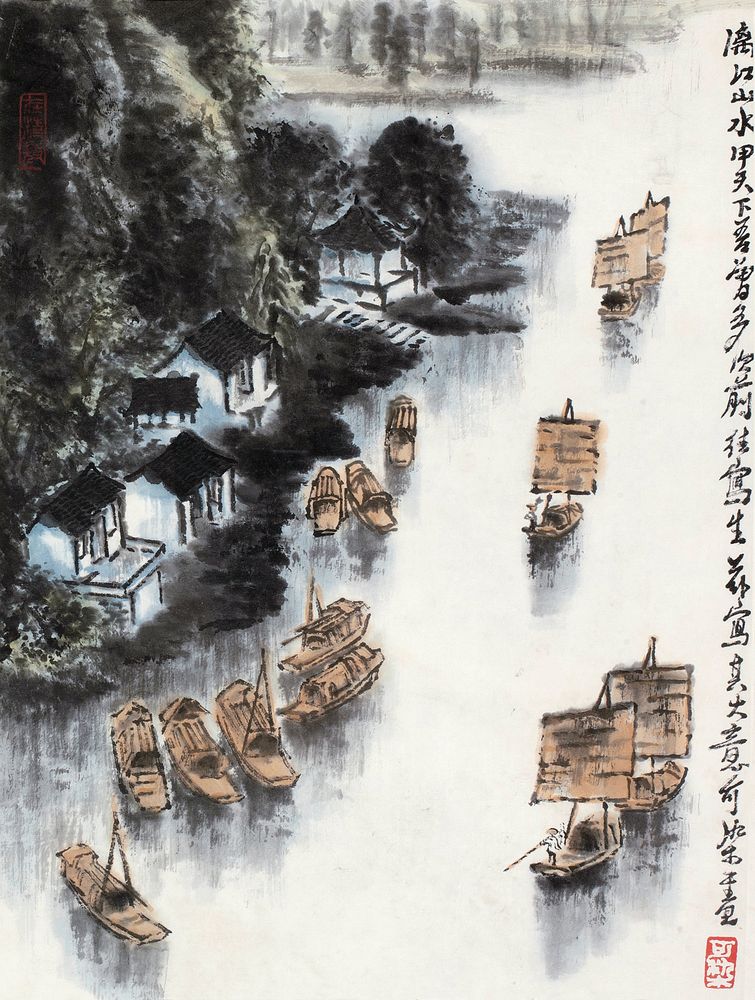 漓江山水甲天下吾曾多次前往寫生茲寫其大意可染畫
可染